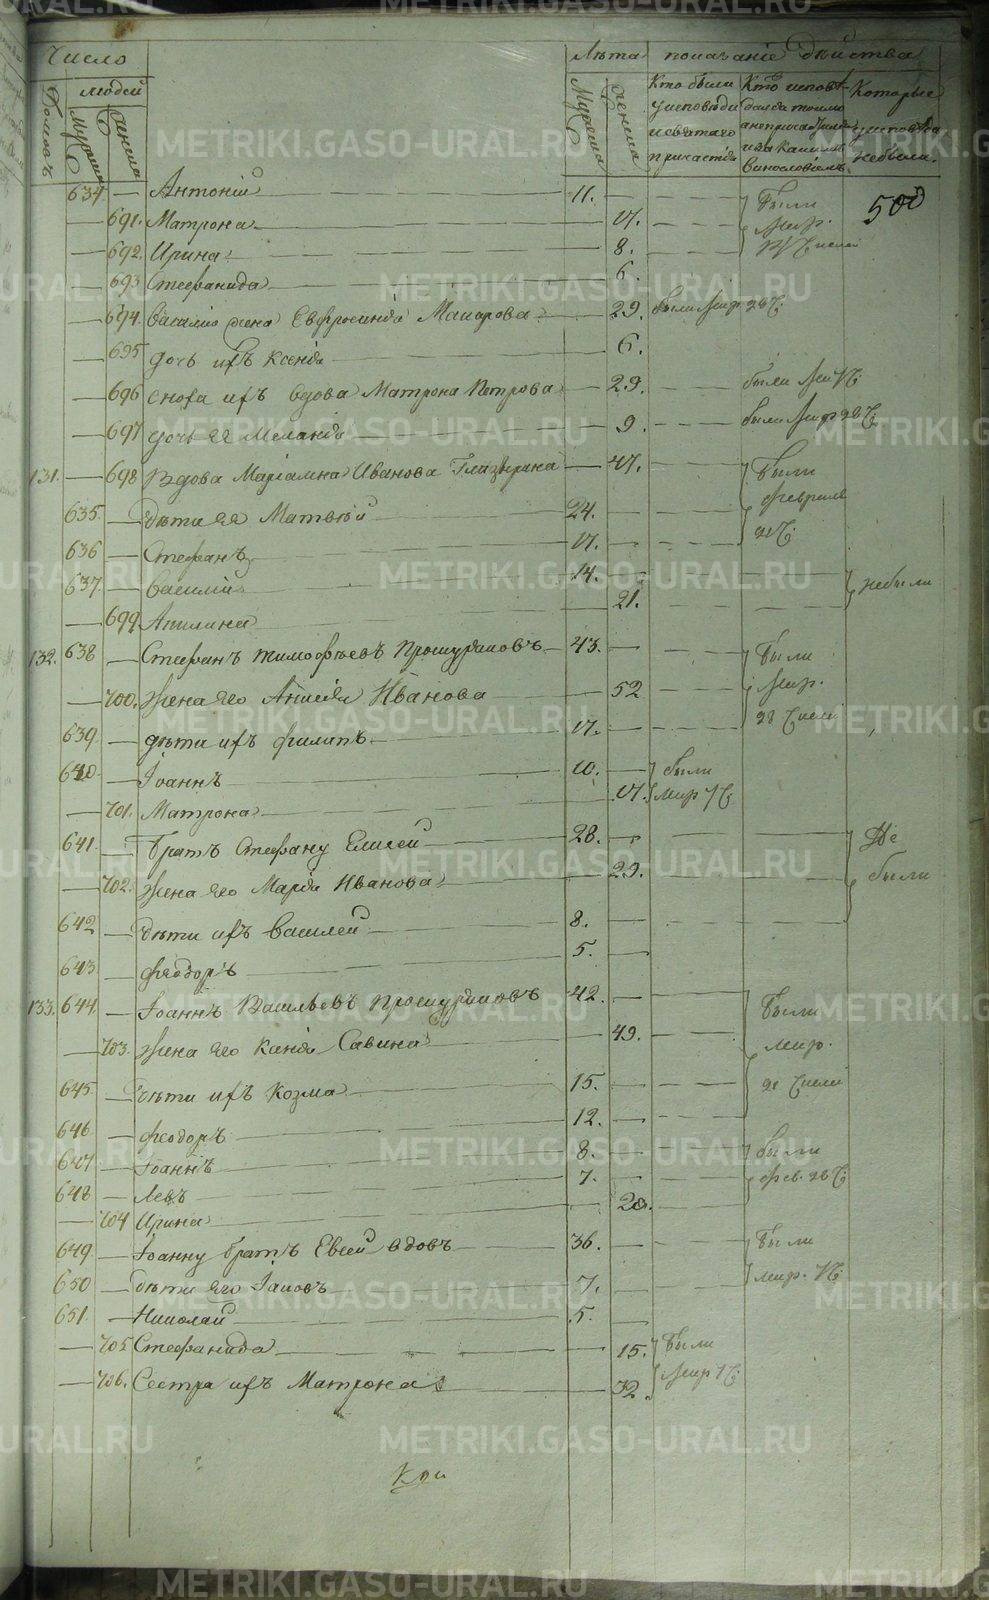 Число
Лѣта показаніе дѣйства
Домовъ
людей
Мужеска
женска
Мужеска
женска
Кто были у исповѣди и святаго причастія
Кто исповѣдался токмо а не причастился и за какимъ винословіемъ
Которые у исповѣди не были.
500
634 Антоній 11. были
691. Матрона 17. Мар.
692. Ирина 8.
693 Стефанида 6.
694. Василія жена Евфросинія Макарова 29. были Мар 28 ч.
695 дочь ихъ Ксенія 6.
696 сноха ихъ вдова Матрона Петрова 29. были
697 дочь ея Меланія 9. были Мар 28 ч.
131. 698 Вдова Маріамна Иванова 47. были февраля
635. дѣти ея Матвѣй 24.
636 Стефанъ 17.
637. Василій 14. не были
699 Акилина 21.
132. 638 Стефанъ Тимофѣевъ Прошуряковъ 43. были
700. жена его Анисія Иванова 52 Мар.
639 дѣти ихъ Филипъ 17.
640 Іоаннъ 10. были
701. Матрона 17. Мар 7 ч.
641. Братъ Стефану Елисей 28. Не были
702. жена его Марія Иванова 29.
642 дѣти ихъ Василей 8.
643 Феодоръ 5.
133. 644 Іоаннъ Васильевъ Прошуряковъ 42. были
703. жена его Ксенія Савина 49. Мар.
645. дѣти ихъ Козма 15.
646 Феодоръ 12.
647 Іоаннъ 8. были
648 Левъ 7. фев. 28 ч.
704 Ирина 20.
649. Іоанну братъ Евсей вдовъ 36. были
650 дѣти его Іаковъ 7. мар.
651. Николай 5.
705 Стефанида 15. были
706. Сестра ихъ Матрона 32 Мар 7 ч.
METRIKI.GASO-URAL.RU